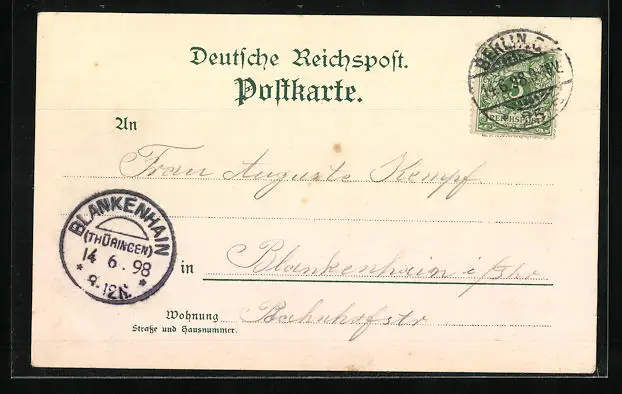 Deutsche Reichspost.
Postkarte.
BERLIN.C.
14.6.98
5
REICHSPOST
An
Frau Auguste Kempf.
BLANKENHAIN
(THÜRINGEN)
14 6. 98
* 9.12N. *
in Blankenhain i/Thr.
Wohnung Bahnhofstr
Straße und Hausnummer.